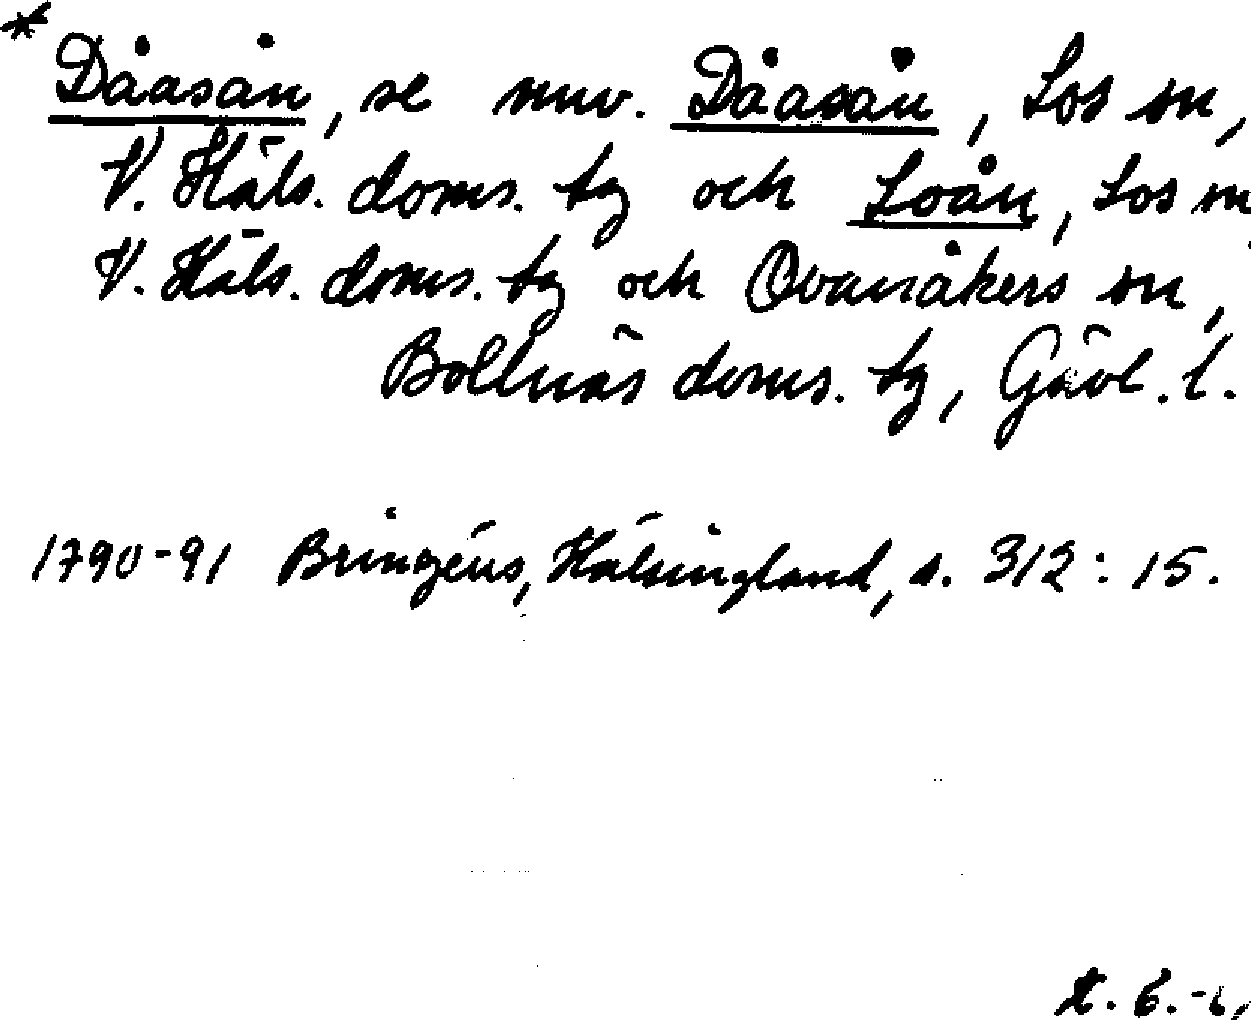 * Dåasån, se nuv. Dåasån, Los sn,
V. Häls. doms. tg och Loån, Los sn
V. Häls. doms. tg och Ovanåkers sn,
Bollnäs doms. tg, Gävl. l.
1790-91 Bringéus, Hälsingland, s. 312: 15.